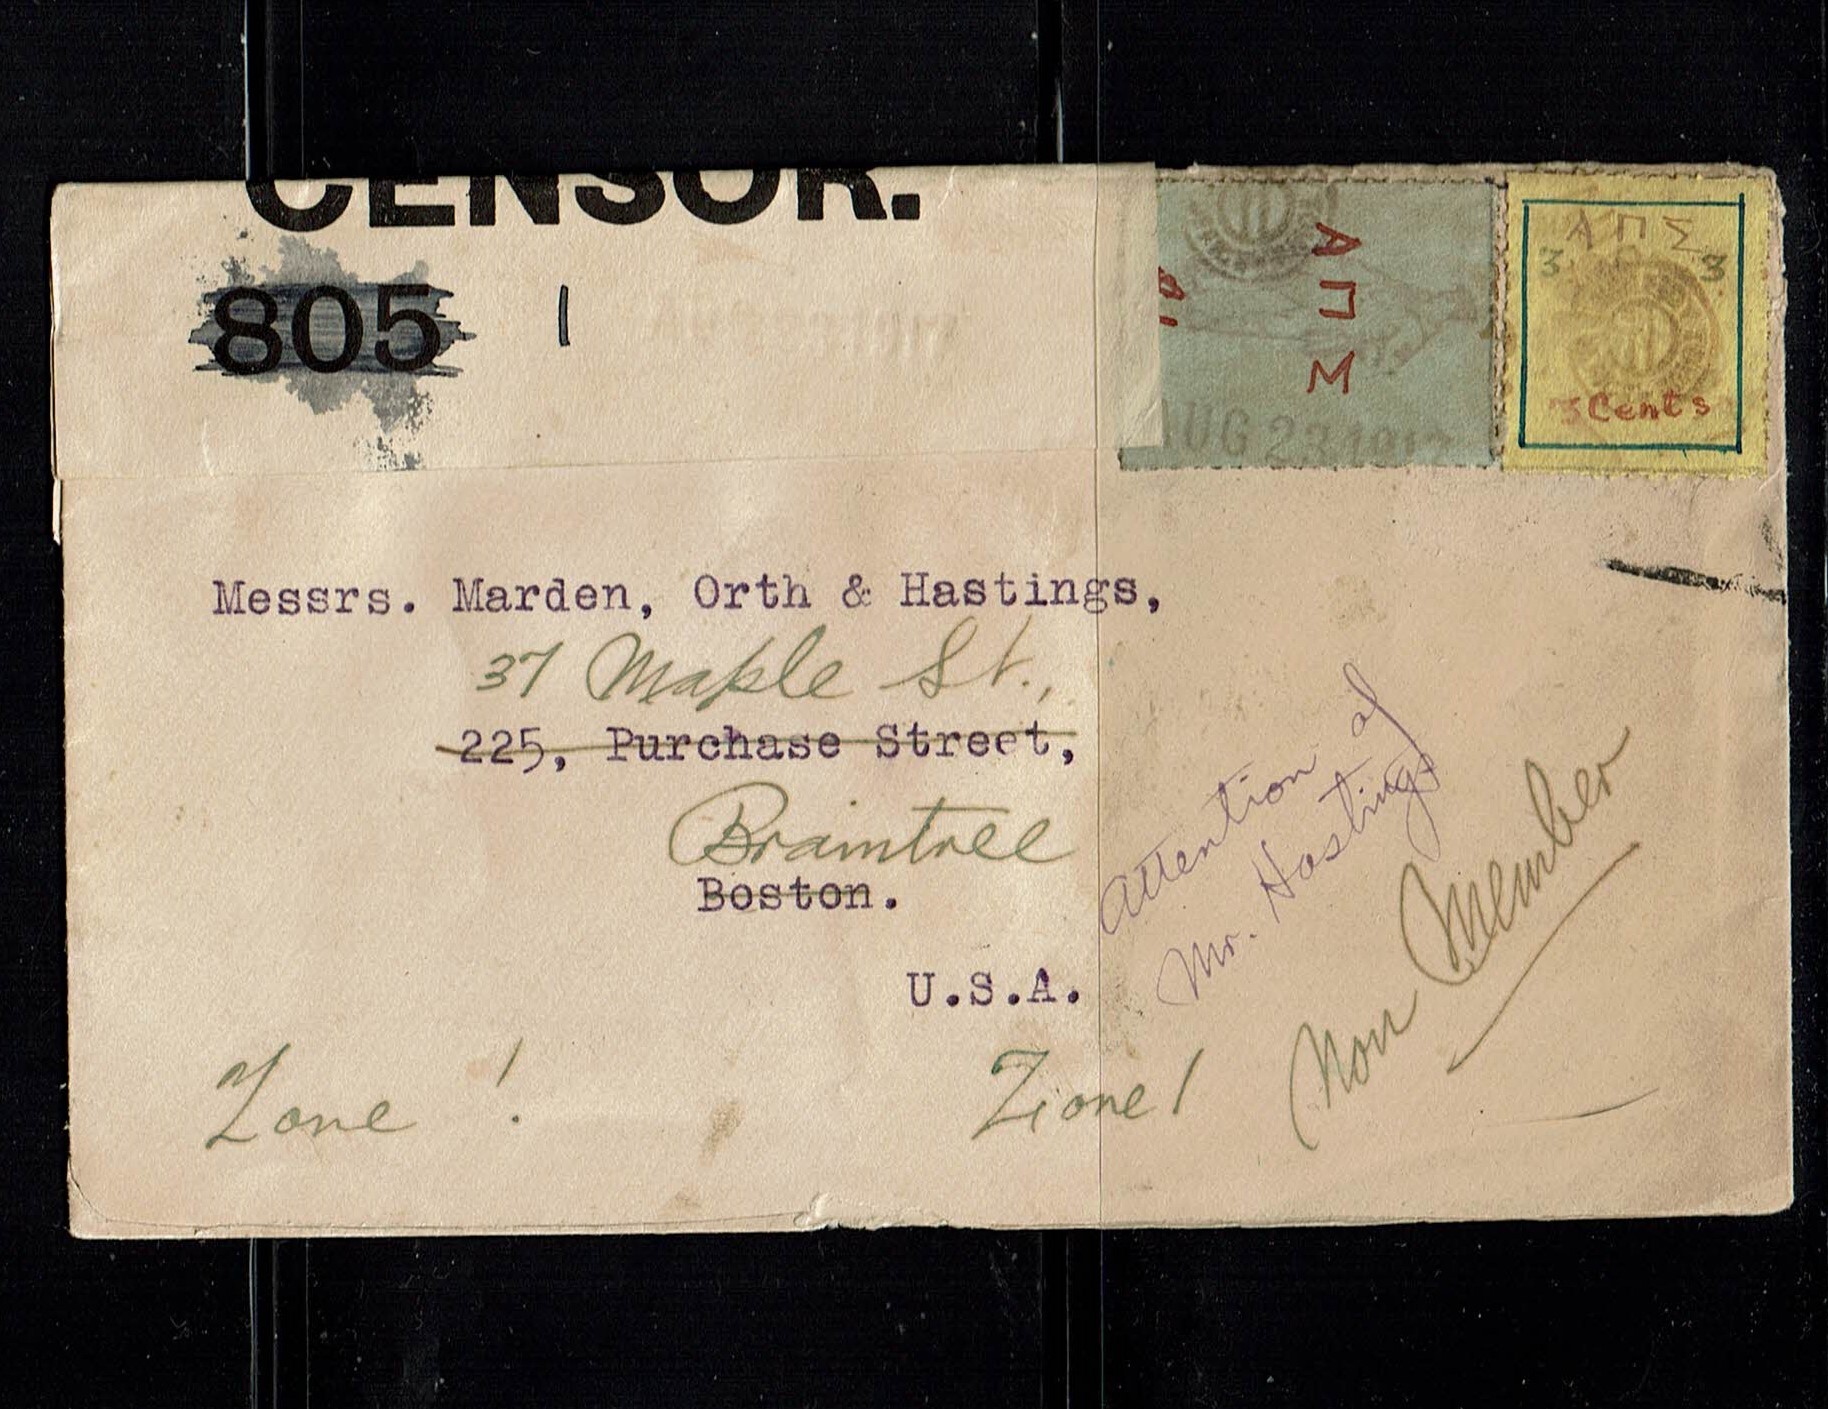 CENSOR.
805
Α Π Σ
AUG 23 1917
Α Π Σ
3 3
3 Cents
Messrs. Marden, Orth & Hastings,
37 Maple St.,
225, Purchase Street,
Braintree
Boston.
U.S.A.
Attention of
Mr. Hastings
Non Member
Zone !
Zone 1